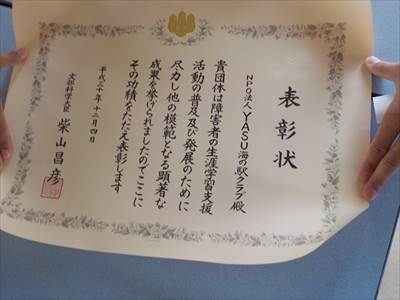 表彰状
NPO法人 YASU海の駅クラブ殿
貴団体は障害者の生涯学習支援
活動の普及及び発展のために
尽力し他の模範となる顕著な
成果を挙げられましたのでここに
その功績をたたえ表彰します
平成三十年十二月四日
文部科学大臣 柴山昌彦